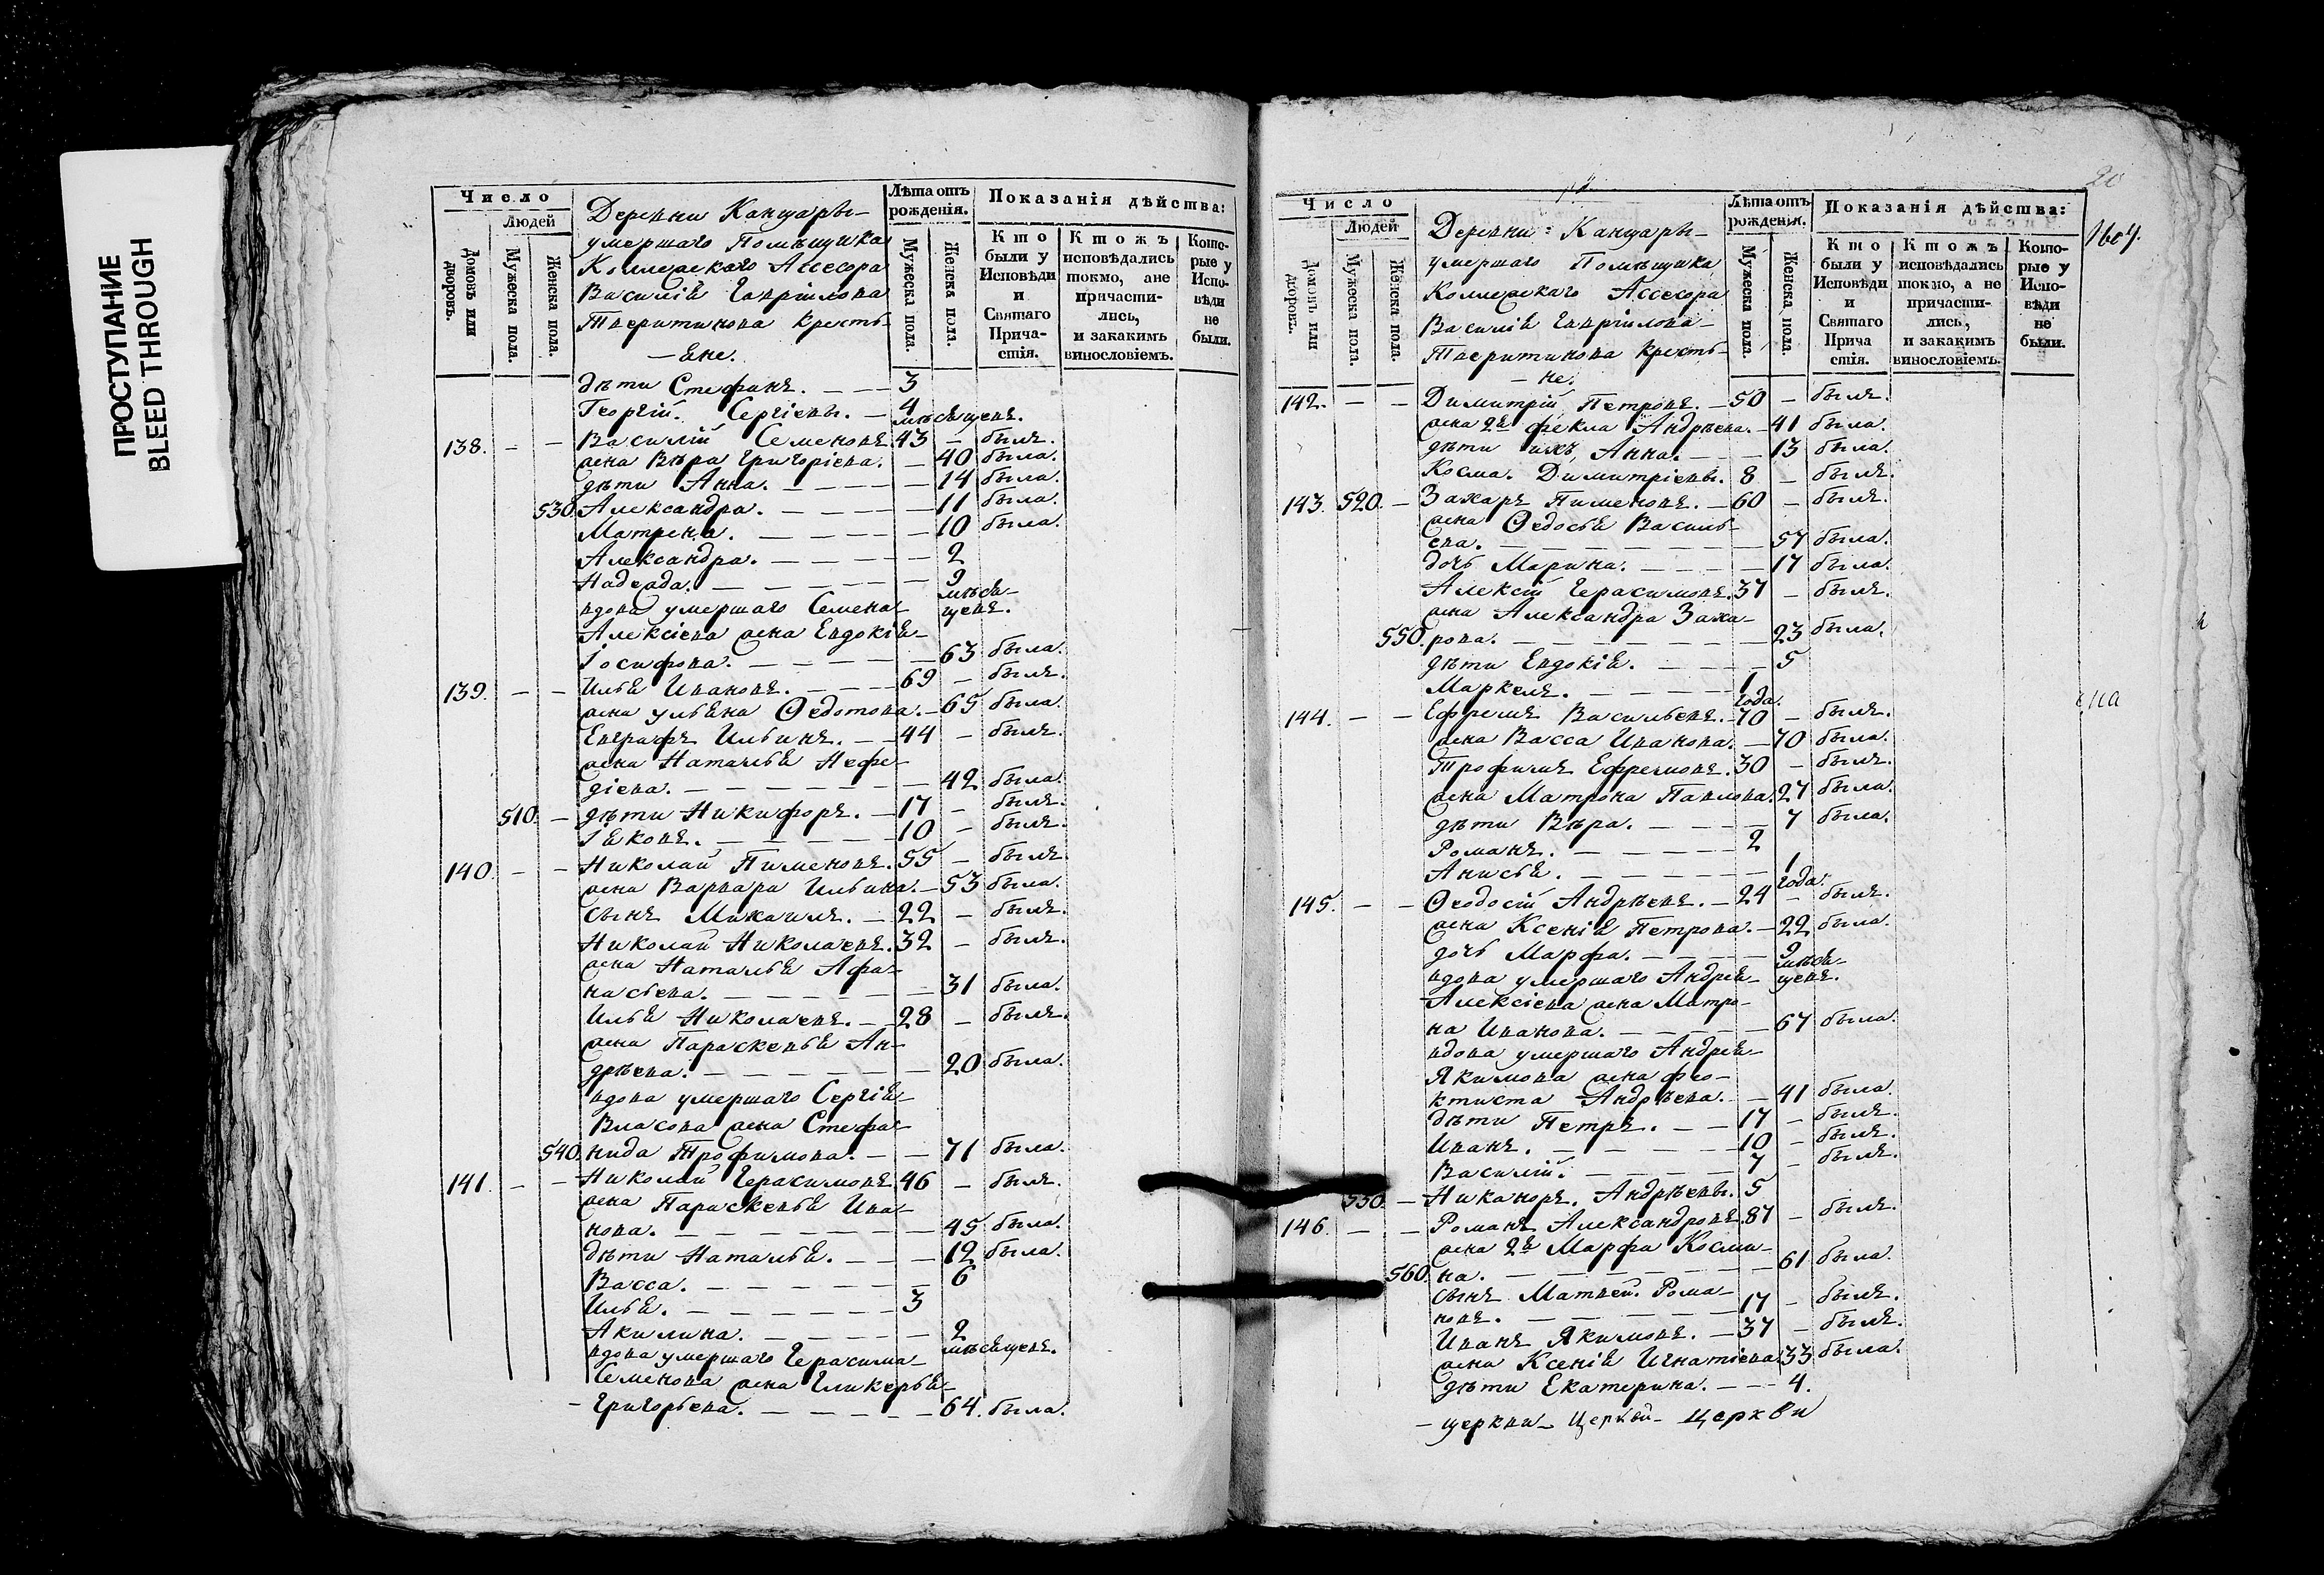 ПРОСТУПАНИЕ
BLEED THROUGH
Число
Людей
Домовъ или дворовъ.
Мужеска пола.
Женска пола.
Деревни Канцары
умершаго Помѣщика
Коллежскаго Ассесора
Василія Гавріилова
Тверитинова кресть-
яне.
Лѣта отъ рожденія.
Мужеска пола.
Женска пола.
Показанія дѣйства:
Кто были у Исповѣди и Святаго Прича- стія.
Ктожъ исповѣдались токмо, ане причасти- лись, и закакимъ винословіемъ.
Кото- рые у Испо- вѣди не были.
дѣти Стефанъ. — — 3
Георгій. Сергіевы. — 4 мѣсяцевъ.
138. — — Василій Семеновъ. 43 — былъ.
жена Вѣра Григоріева. — 40 была.
дѣти Анна. — — — 14 была.
530. Александра. — — — 11 была.
Матрена. — — — 10 была.
Александра. — — — 2
Надежда. — — — 9 мѣся-
вдова умершаго Семена цевъ.
Алексіева жена Евдокія
Іосифова. — — — 63 была.
139. — — Илья Ивановъ. — — 69 — былъ.
жена Ульяна Ѳедотова. — 65 была.
Евграфъ Ильинъ. — — 44 — былъ.
жена Наталья Нефе-
діева. — — — 42 была.
510. — дѣти Никифоръ. — 17 — былъ.
Іяковъ. — — — 10 — былъ.
140. — — Николай Пименовъ. 55 — былъ.
жена Варвара Ильина. — 53 была.
сынъ Михаилъ. — 22 — былъ.
Николай Николаевъ. 32 — былъ.
жена Наталья Афа-
насьева. — — — 31 была.
Илья Николаевъ. — 28 — былъ.
жена Параскевья Ан-
дрѣева. — — — 20 была.
вдова умершаго Сергія
Власова жена Стефа-
540. нида Трофимова. — — 71 была.
141. — — Николай Герасимовъ. 46 — былъ.
жена Параскевья Ива-
нова. — — — 45 была.
дѣти Наталья. — — 12 была.
Васса. — — — 6
Илья. — — — 3
Акилина. — — — 2 мѣсяцевъ.
вдова умершаго Герасима
Семенова жена Гликерья
Григорьева. — — — 64. была.
20
Число
Людей
Домовъ или дворовъ.
Мужеска пола.
Женска пола.
Деревни Канцары
умершаго Помѣщика
Коллежскаго Ассесора
Василія Гавріилова
Тверитинова кресть-
не.
Лѣта отъ рожденія.
Мужеска пола.
Женска пола.
Показанія дѣйства:
Кто были у Исповѣди и Святаго Прича стія.
Ктожъ исповѣдались токмо, а не причасти- лись, и закакимъ винословіемъ.
Кото- рые у Испо- вѣди не были.
142. — — Димитрій Петровъ. — 50 — былъ.
жена 2я Фекла Андрѣева. — 41 была.
дѣти ихъ, Анна. — — 13 была.
Косма. Димитріевы. 8 — былъ.
143. 520. — Захаръ Пименовъ. — 60 — былъ.
жена Ѳедосья Василь-
ева. — — — 57 была.
дочь Марина. — — — 17 была.
Алексій Герасимовъ. 37 — былъ.
жена Александра Заха-
550. рова. — — — 23 была.
дѣти Евдокія. — — — 5
Маркелъ. — — — 1 года.
144. — — Ефремъ Васильевъ. — 70 — былъ.
жена Васса Иванова. — 70 была.
Трофимъ Ефремовъ. 30 — былъ.
жена Матрона Павлова. 27 была.
дѣти Вѣра. — — — 7 была.
Романъ. — — — 2
Анисья. — — — 1 года.
145. — — Ѳеодосій Андрѣевъ. — 24 — былъ.
жена Ксенія Петрова. — 22 была.
дочь Марфа. — — — 9 мѣся-
вдова умершаго Андрея цевъ.
Алексіева жена Матро-
на Иванова. — — — 67 была.
вдова умершаго Андрея
Якимова жена Фео-
ктиста Андрѣева. — 41 была.
дѣти Петръ. — — 17 — былъ.
Иванъ. — — — 10 — былъ.
Василій. — — — 7 — былъ.
530. — Никаноръ. Андрѣевы. 5
146. — — Романъ Александровъ. 87 — былъ.
жена 2я Марфа Косми-
560. на. — — — 61 была.
сынъ Матвей. Рома-
новъ. — — — 17 — былъ.
Иванъ Якимовъ. — 37 — былъ.
жена Ксенія Игнатіева. 33 была.
дѣти Екатерина. — — 4.
— церкви — Церкви — Церкви